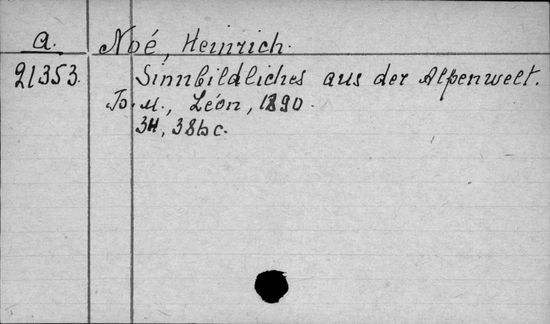 a. Noé, Heinrich.
21353. Sinnbildliches aus der Alpenwelt.
Léon, 1890.
3H, 38bc.